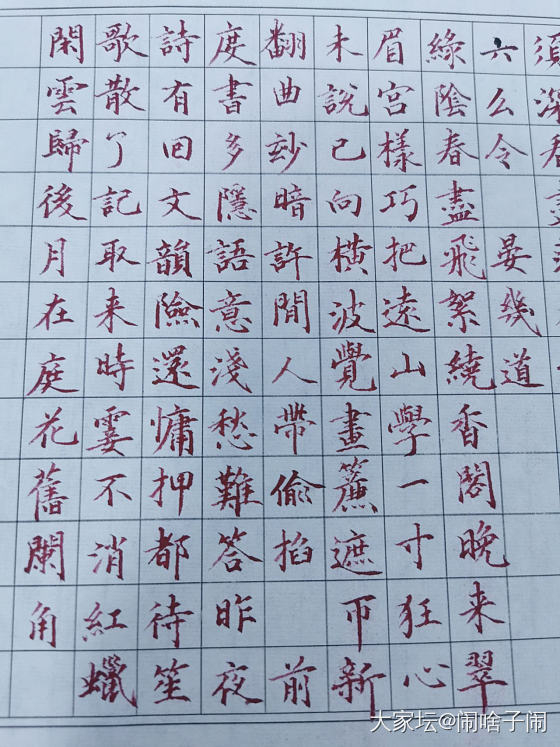 六么令 晏幾道
綠陰春盡飛絮繞香閣晚来翠
眉宮樣巧把遠山學一寸狂心
未說已向橫波覺畫簾遮帀新
翻曲玅暗許間人帶偷掐 前
度書多隱語意淺愁難答昨夜
詩有回文韻險還慵押都待笙
歌散了記取来時霎不消紅蠟
閑雲歸後月在庭花舊闌角
大家坛@闹啥子闹